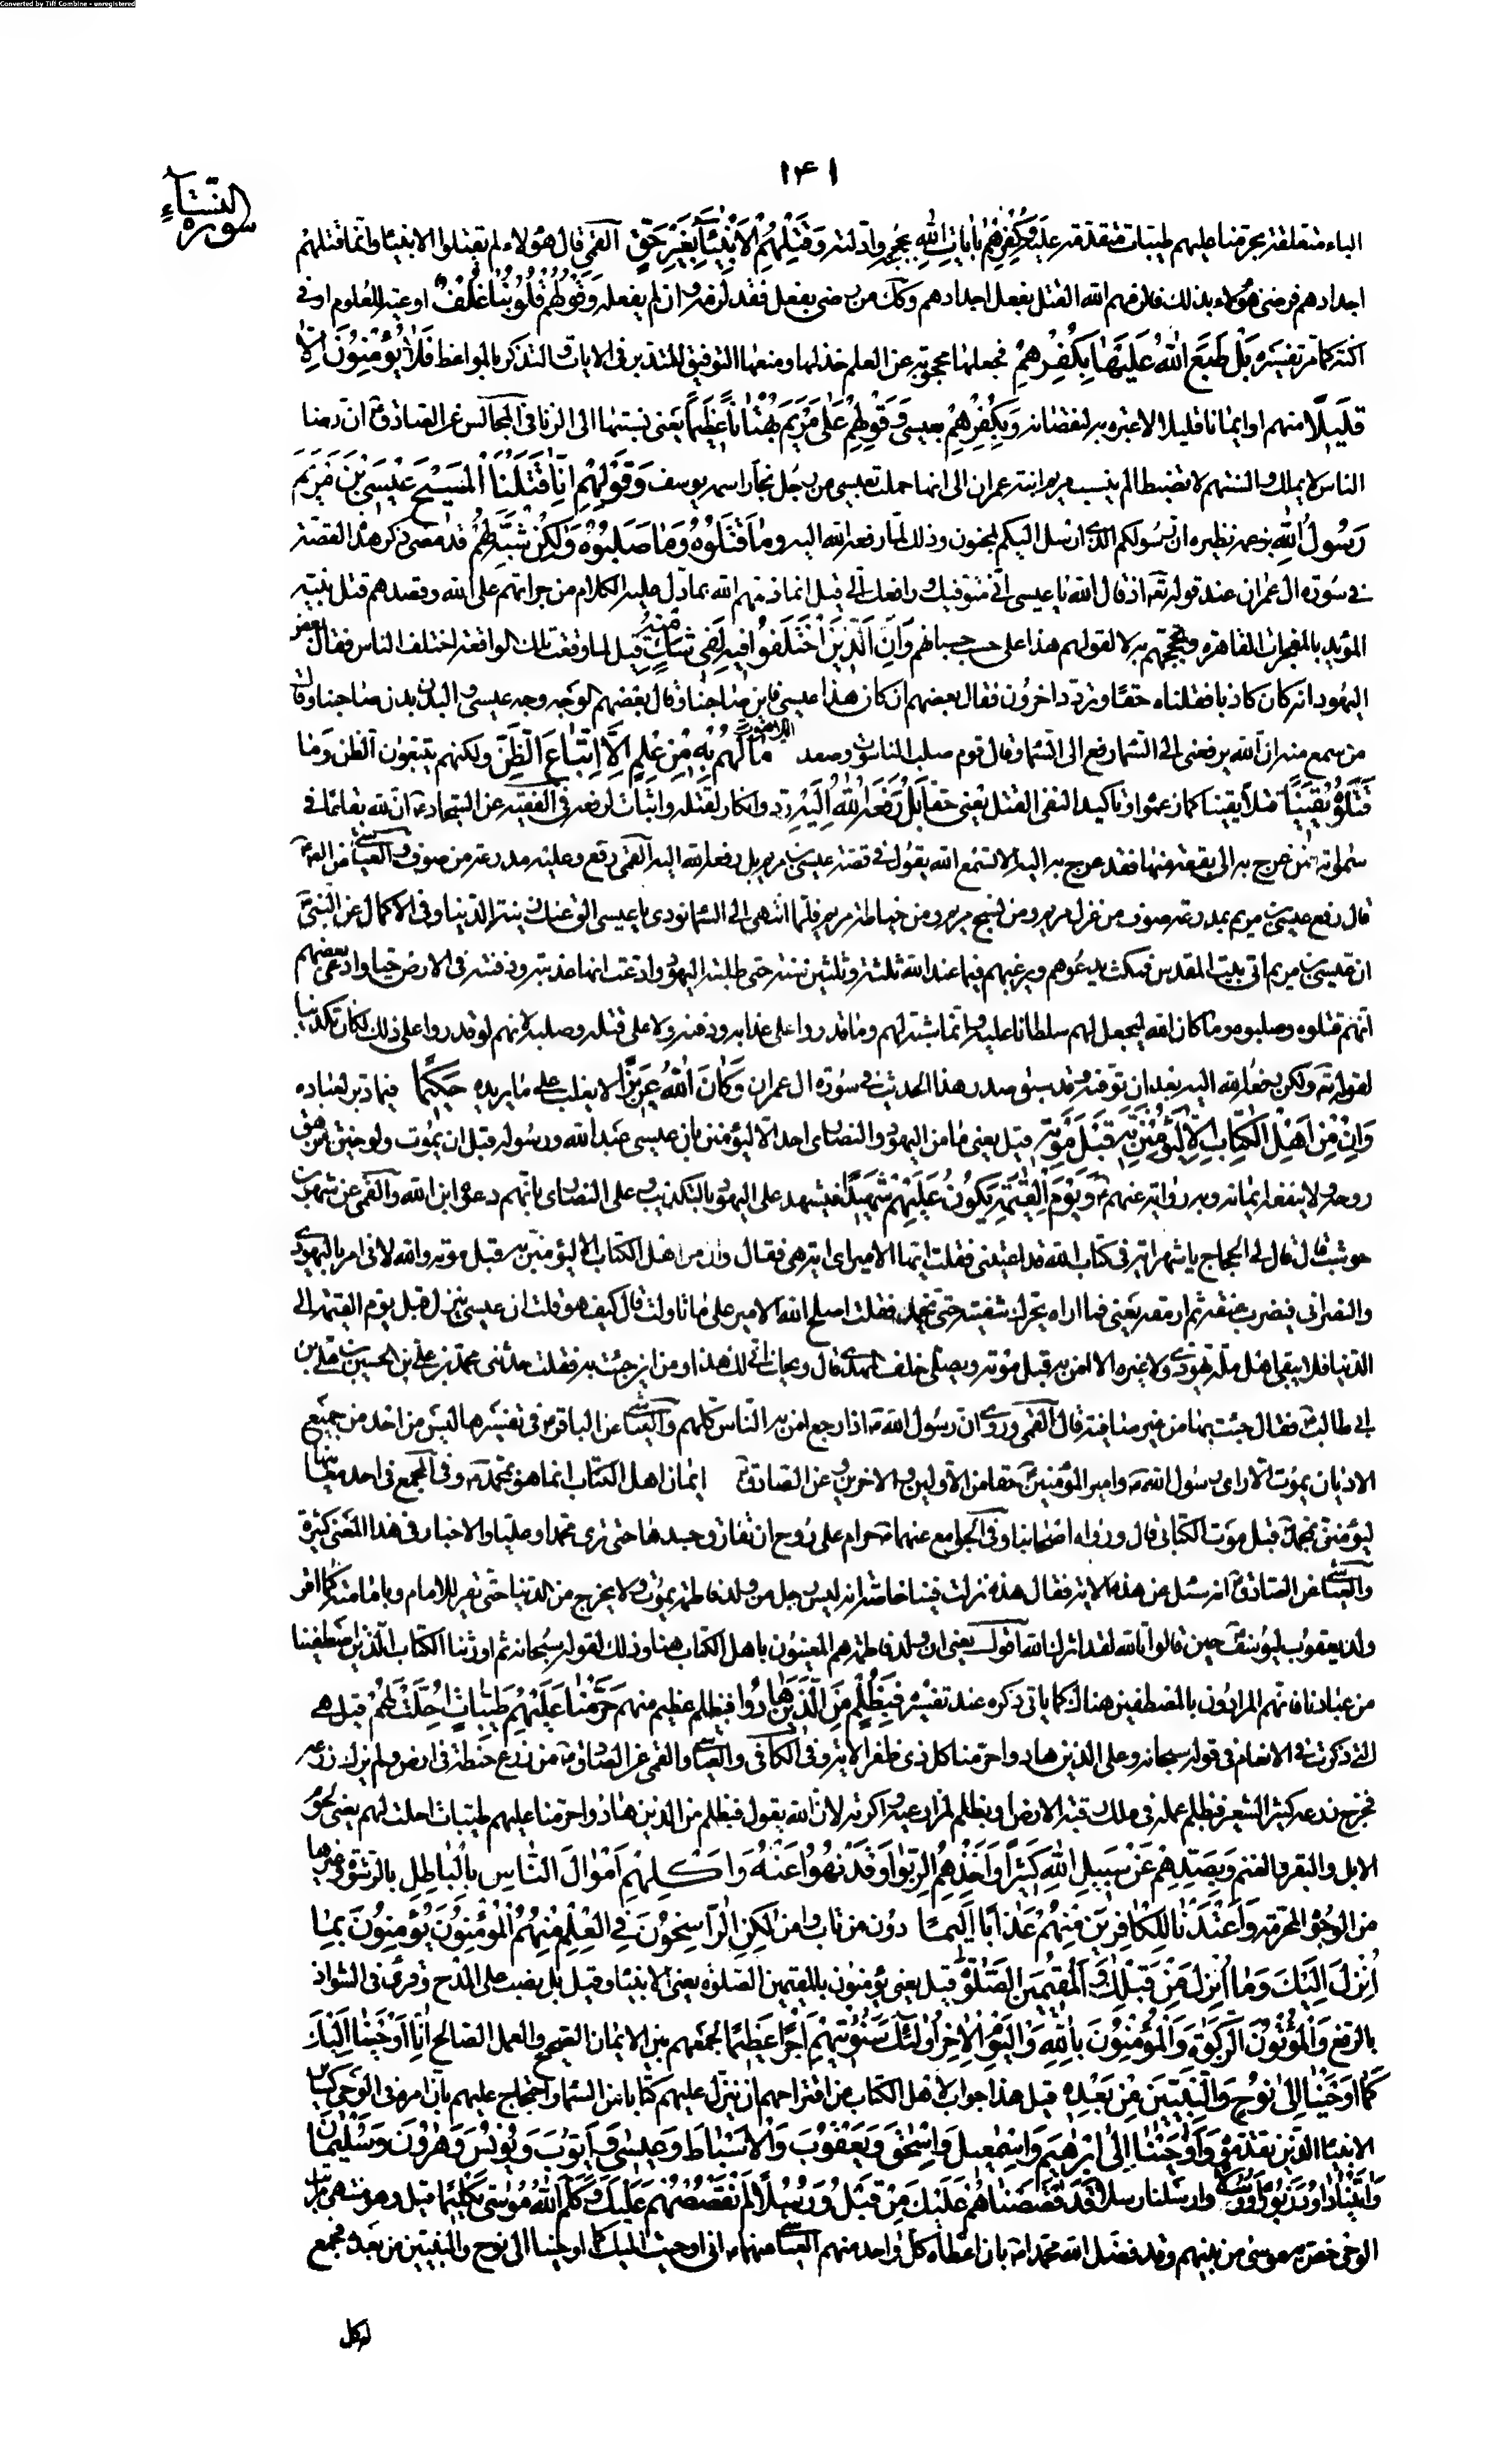 Converted by Tiff Combine - unregistered
١۴١
سورة النساء
الباء متعلقة بحرمنا عليهم طيبات متقدمة عليه وَكُفْرِهِمْ بِآيَاتِ اللهِ بحججه وادلته وَقَتْلِهِمُ الْاَنْبِيَاءَ بِغَيْرِ حَقٍّ القمي قال هؤلاء لم يقتلوا الانبياء وانما قتلهم
اجدادهم فرضى هؤلاء بذلك فالزمهم الله القتل بفعل اجدادهم وكذلك من رضى بفعل فقد لزمه وان لم يفعله وَقَوْلِهِمْ قُلُوبُنَا غُلْفٌ اوعية للعلوم او في
اكنة كما مر تفسيره بَلْ طَبَعَ اللهُ عَلَيْهَا بِكُفْرِهِمْ فجعلها محجوبة عن العلم خذلها ومنعها التوفيق للتدبر في الايات والتذكر بالمواعظ فَلَا يُؤْمِنُونَ اِلَّا
قَلِيلًا منهم او ايمانا قليلا لا عبرة به لنقصانه وَبِكُفْرِهِمْ بعيسى وَقَوْلِهِمْ عَلَى مَرْيَمَ بُهْتَانًا عَظِيمًا يعني نسبتها الى الزنا في المجالس عن الصادق ان رضا
الناس لا يملك والسنتهم لا تضبط الم ينسبوا مريم ابنة عمران الى انها حملت بعيسى من رجل نجار اسمه يوسف وَقَوْلِهِمْ اِنَّا قَتَلْنَا الْمَسِيحَ عِيسَى بْنَ مَرْيَمَ
رَسُولَ اللهِ بزعمه نظيره ان رسولكم الذي ارسل اليكم لمجنون وذلك لما رفعه الله اليه وَمَا قَتَلُوهُ وَمَا صَلَبُوهُ وَلٰكِنْ شُبِّهَ لَهُمْ قد مضى ذكر هذه القصة
في سورة ال عمران عند قوله تعالى اذ قال الله يا عيسى اني متوفيك ورافعك الي قيل انما ذمهم الله بما دل عليه الكلام من جرأتهم على الله وقصدهم قتل نبيه
المؤيد بالمعجزات القاهرة وتبجحهم به لا لقولهم هذا على حسب حسبانهم وَاِنَّ الَّذِينَ اخْتَلَفُوا فِيهِ لَفِي شَكٍّ مِنْهُ قيل لما وقعت تلك الواقعة اختلف الناس فقال بعض
اليهود انه كان كاذبا فقتلناه حقا وتردد اخرون فقال بعضهم ان كان هذا عيسى فاين صاحبنا وقال بعضهم الوجه وجه عيسى والبدن بدن صاحبنا وقال
من سمع منه ان الله يرفعني الى السماء رفع الى السماء وقال قوم صلب الناسوت وصعد اللاهوت مَا لَهُمْ بِهِ مِنْ عِلْمٍ اِلَّا اتِّبَاعَ الظَّنِّ ولكنهم يتبعون الظن وَمَا
قَتَلُوهُ يَقِينًا قتلا يقينا كما زعموا او تاكيد النفي القتل يعني حقا بَلْ رَفَعَهُ اللهُ اِلَيْهِ رد وانكار لقتله واثبات لرفعه في الفقيه عن السجاد ان لله بقاعا في
سمواته فمن عرج به الى بقعة منها فقد عرج به اليه الا تسمع الله يقول في قصة عيسى بن مريم بل رفعه الله اليه القمي رفع وعليه مدرعة من صوف والعياشي عن الصادق
قال رفع عيسى بن مريم بمدرعة صوف من غزل مريم ومن نسج مريم ومن خياطة مريم فلما انتهى الى السماء نودى يا عيسى الق عنك زينة الدنيا وفي الاكمال عن النبي
ان عيسى بن مريم اتى بيت المقدس فمكث يدعوهم ويرغبهم فيما عند الله ثلثة وثلثين سنة حتى طلبته اليهود وادعت انها عذبته ودفنته في الارض حيا وادعى بعضهم
انهم قتلوه وصلبوه وما كان الله ليجعل لهم سلطانا عليه وانما شبه لهم وما قدروا على عذابه ودفنه ولا على قتله وصلبه لانهم لو قدروا على ذلك لكان تكذيبا
لقوله تعالى ولكن رفعه الله اليه بعد ان توفيه وقد سبق صدر هذا الحديث في سورة ال عمران وَكَانَ اللهُ عَزِيزًا لا يغلب على ما يريده حَكِيمًا فيما دبر لعباده
وَاِنْ مِنْ اَهْلِ الْكِتَابِ اِلَّا لَيُؤْمِنَنَّ بِهِ قَبْلَ مَوْتِهِ قيل يعني ما من اليهود والنصارى احد الا ليؤمنن بان عيسى عبد الله ورسوله قبل ان يموت ولو حين تزهق
روحه ولا ينفعه ايمانه وبه رواية عنهم وَيَوْمَ الْقِيٰمَةِ يَكُونُ عَلَيْهِمْ شَهِيدًا فيشهد على اليهود بالتكذيب وعلى النصارى بانهم دعوه ابن الله والقمي عن شهر بن
حوشب قال قال لي الحجاج يا شهر اية في كتاب الله قد اعيتني فقلت ايها الامير اي اية هي فقال وان من اهل الكتاب الا ليؤمنن به قبل موته والله لاني امر باليهودي
والنصراني فيضرب عنقه ثم ارمقه بعيني فما اراه يحرك شفتيه حتى يخمد فقلت اصلح الله الامير ليس على ما تاولت قال كيف هو قلت ان عيسى ينزل قبل يوم القيمة الى
الدنيا فلا يبقى اهل ملة يهودي ولا غيره الا امن به قبل موته ويصلي خلف المهدي قال ويحك انى لك هذا ومن اين جئت به فقلت حدثني محمد بن علي بن الحسين بن علي بن
ابي طالب فقال جئت بها من عين صافية قال القمي وروى ان رسول الله اذا رجع امن به الناس كلهم والعياشي عن الباقر في تفسيرها ليس من احد من جميع
الاديان يموت الا راى رسول الله وامير المؤمنين حقا من الاولين والاخرين وعن الصادق ايمان اهل الكتاب انما هو بمحمد وفي المجمع في احد معانيها
ليؤمنن بمحمد قبل موت الكتابي قال ورواه اصحابنا وفي الجوامع عنهما حرام على روح ان تفارق جسدها حتى ترى محمدا وعليا والاخبار في هذا المعنى كثيرة
والعياشي عن الصادق انه سئل عن هذه الاية فقال هذه نزلت فينا خاصة انه ليس رجل من ولد فاطمة يموت ولا يخرج من الدنيا حتى يقر للامام وبامامته كما اقر
ولد يعقوب ليوسف حين قالوا تالله لقد اثرك الله علينا اقول يعني ان ولد فاطمة هم المعنيون باهل الكتاب هنا وذلك لقوله سبحانه ثم اورثنا الكتاب الذين اصطفينا
من عبادنا فانهم المرادون بالمصطفين هناك كما ياتي ذكره عند تفسيره فَبِظُلْمٍ مِنَ الَّذِينَ هَادُوا فبظلم عظيم منهم حَرَّمْنَا عَلَيْهِمْ طَيِّبَاتٍ اُحِلَّتْ لَهُمْ قيل هي
التي ذكرت في الانعام في قوله سبحانه وعلى الذين هادوا حرمنا كل ذي ظفر الاية وفي الكافي والعياشي والقمي عن الصادق من زرع حنطة في ارض ولم يزك زرعه
فخرج زرعه كثير الشعير فبظلم عمله في ملك رقبة الارض او بظلم لمزارعيه واكرته لان الله يقول فبظلم من الذين هادوا حرمنا عليهم طيبات احلت لهم يعني لحوم
الابل والبقر والغنم وَبِصَدِّهِمْ عَنْ سَبِيلِ اللهِ كَثِيرًا وَاَخْذِهِمُ الرِّبٰوا وَقَدْ نُهُوا عَنْهُ وَاَكْلِهِمْ اَمْوَالَ النَّاسِ بِالْبَاطِلِ بالرشوة وغيرها
من الوجوه المحرمة وَاَعْتَدْنَا لِلْكَافِرِينَ مِنْهُمْ عَذَابًا اَلِيمًا دون من تاب وامن لٰكِنِ الرَّاسِخُونَ فِي الْعِلْمِ مِنْهُمْ وَالْمُؤْمِنُونَ يُؤْمِنُونَ بِمَا
اُنْزِلَ اِلَيْكَ وَمَا اُنْزِلَ مِنْ قَبْلِكَ وَالْمُقِيمِينَ الصَّلٰوةَ قيل يعني يؤمنون بالمقيمين الصلوة يعني الانبياء وقيل بل نصب على المدح وقرئ في الشواذ
بالرفع وَالْمُؤْتُونَ الزَّكٰوةَ وَالْمُؤْمِنُونَ بِاللهِ وَالْيَوْمِ الْاٰخِرِ اُولٰئِكَ سَنُؤْتِيهِمْ اَجْرًا عَظِيمًا لجمعهم بين الايمان الصحيح والعمل الصالح اِنَّا اَوْحَيْنَا اِلَيْكَ
كَمَا اَوْحَيْنَا اِلَى نُوحٍ وَالنَّبِيِّينَ مِنْ بَعْدِهِ قيل هذا جواب لاهل الكتاب عن اقتراحهم ان ينزل عليهم كتابا من السماء واحتجاج عليهم بان امره في الوحي كساير
الانبياء الذين تقدموه وَاَوْحَيْنَا اِلَى اِبْرٰهِيمَ وَاِسْمٰعِيلَ وَاِسْحٰقَ وَيَعْقُوبَ وَالْاَسْبَاطِ وَعِيسَى وَاَيُّوبَ وَيُونُسَ وَهٰرُونَ وَسُلَيْمَانَ
وَاٰتَيْنَا دَاوُدَ زَبُورًا وَرُسُلًا وارسلنا رسلا قَدْ قَصَصْنَاهُمْ عَلَيْكَ مِنْ قَبْلُ وَرُسُلًا لَمْ نَقْصُصْهُمْ عَلَيْكَ وَكَلَّمَ اللهُ مُوسَى تَكْلِيمًا قيل وهو منتهى مراتب
الوحي خص به موسى من بينهم وقد فضل الله محمدا بان اعطاه كل واحد منهم العياشي عنهما اني اوحيت اليك كما اوحينا الى نوح والنبيين من بعده فجمع
له كل